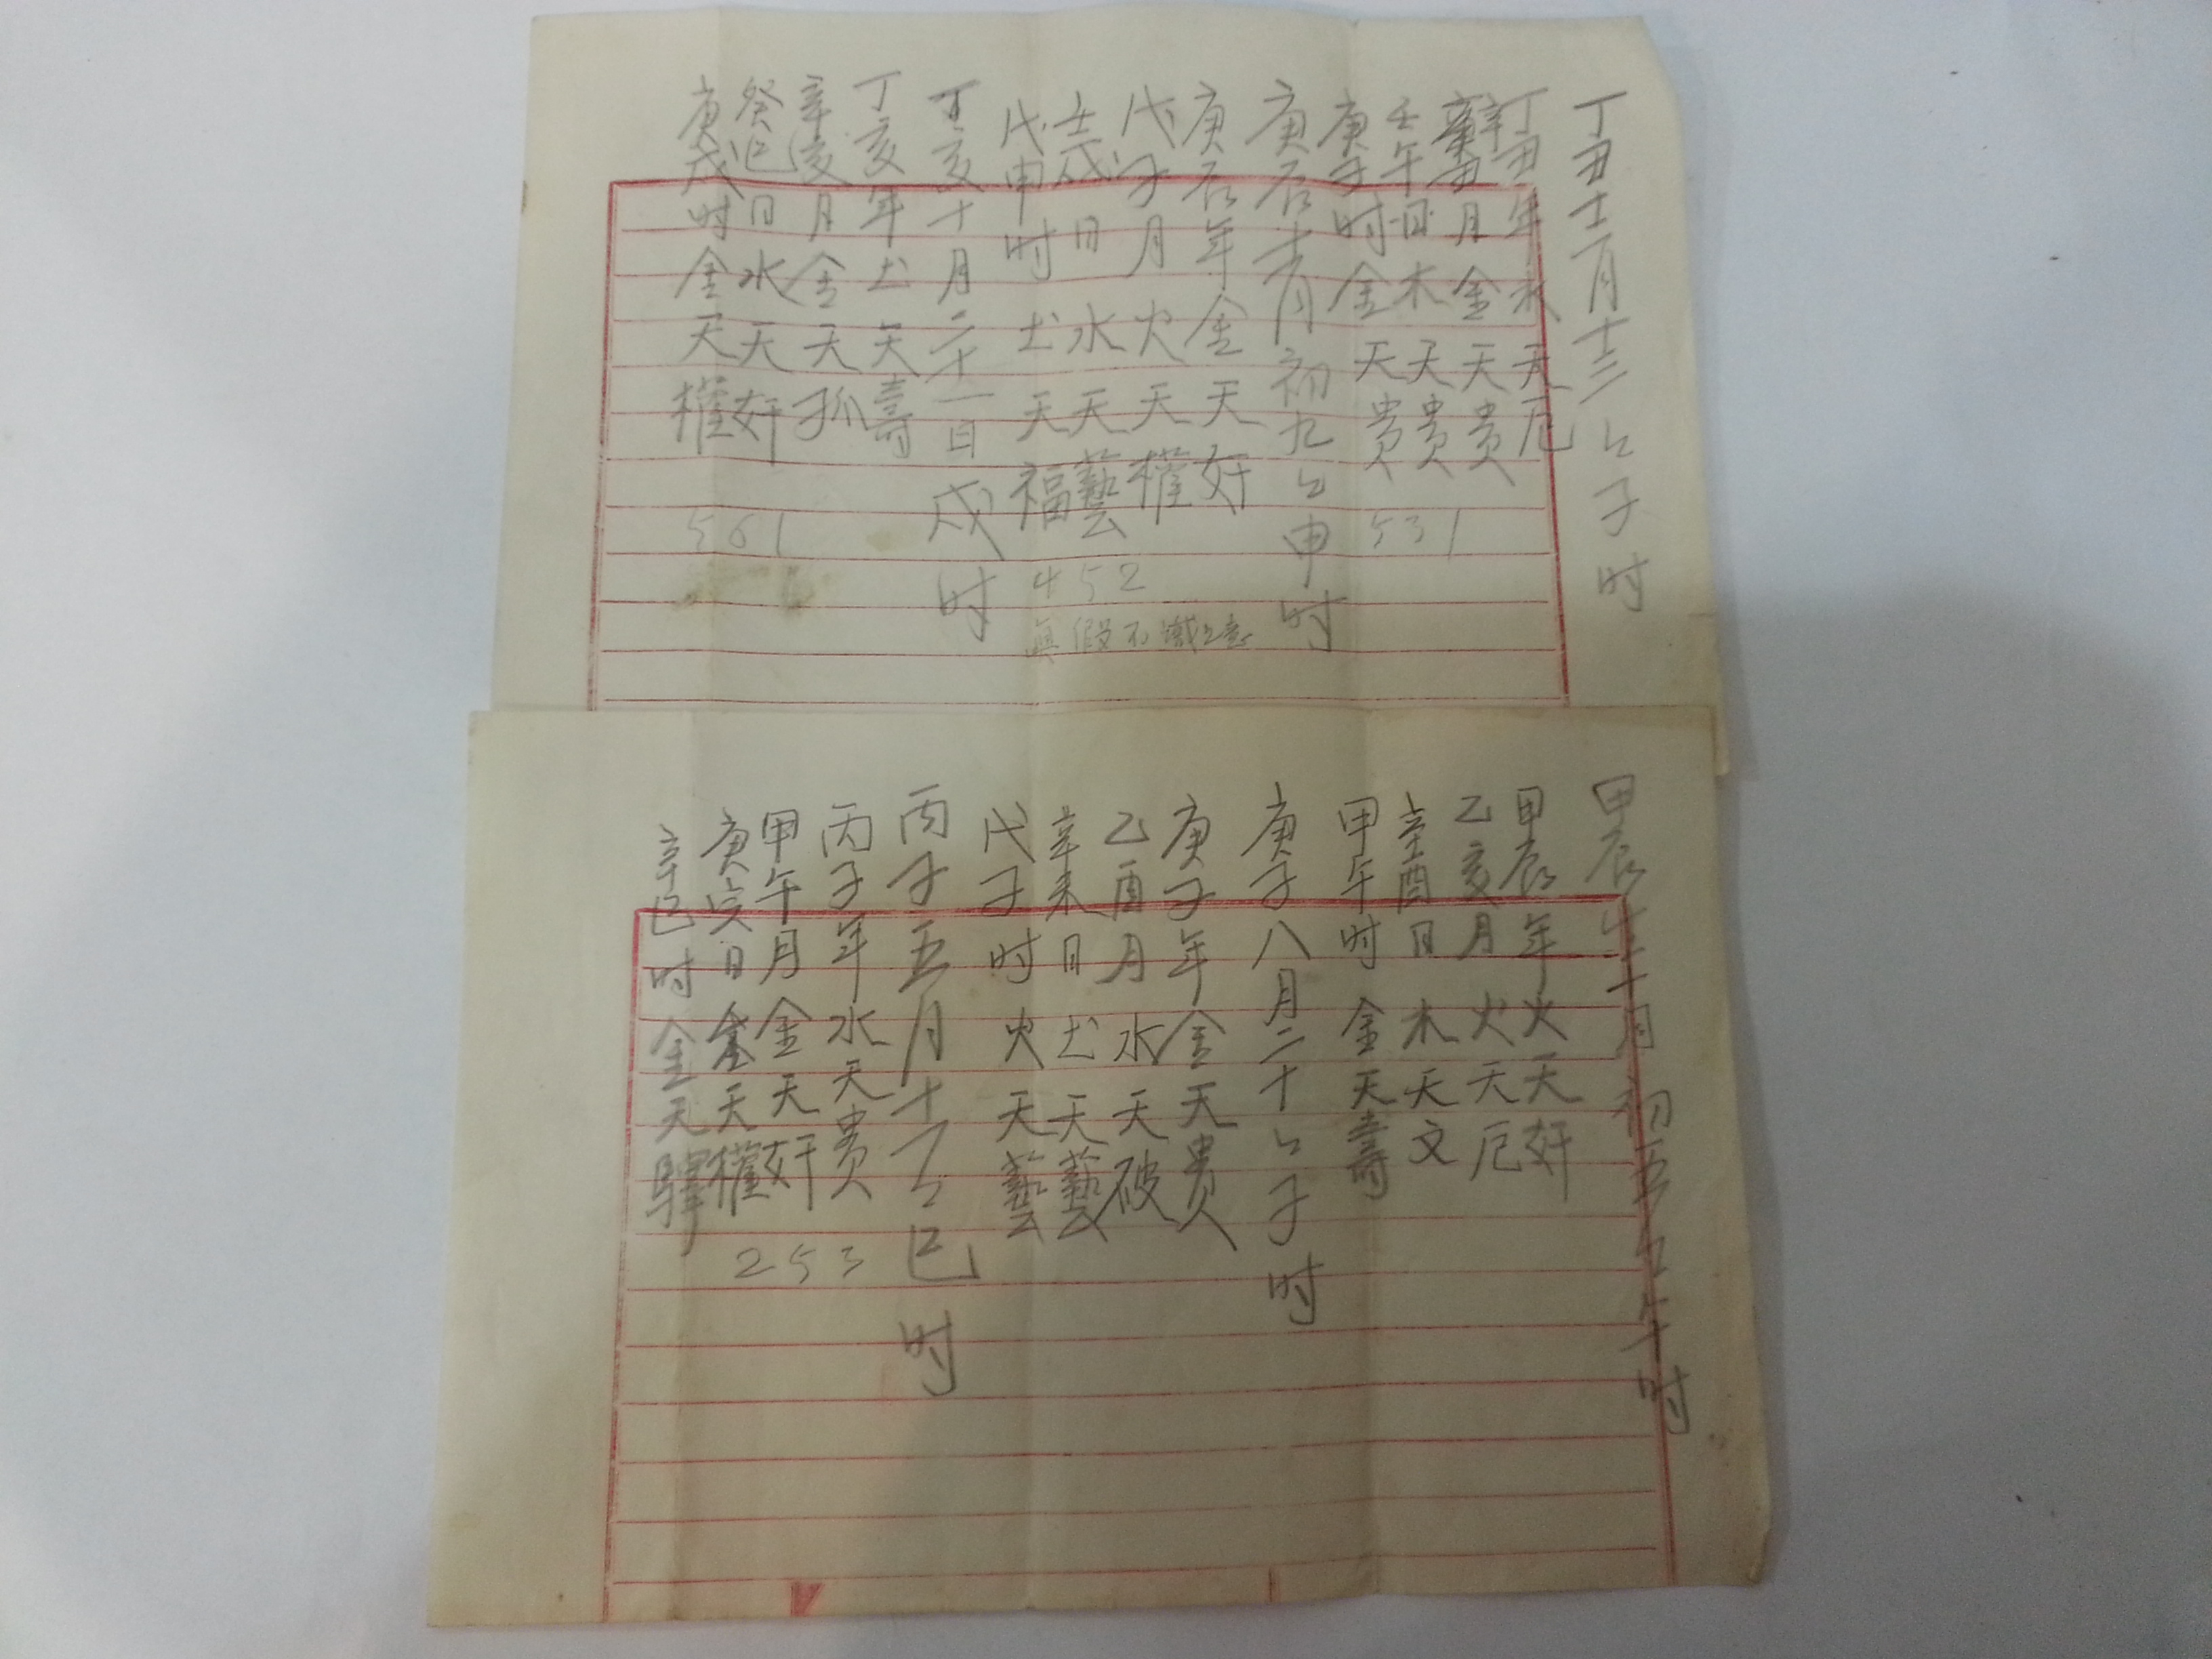 丁丑十二月十三日子时
丁丑年 水 天厄
辛丑月 金 天贵
壬午日 木 天贵
庚子时 金 天贵
531
庚辰十一月初九日申时
庚辰年 金 天奸
戊子月 火 天權
壬戌日 水 天藝
戊申时 土 天福
452
真假不識
丁亥十月二十一日戌时
丁亥年 土 天壽
辛亥月 金 天孤
癸巳日 水 天奸
庚戌时 金 天權
561
甲辰年十月初五日午时
甲辰年 火 天奸
乙亥月 火 天厄
辛酉日 木 天文
甲午时 金 天壽
庚子八月二十日子时
庚子年 金 天贵
乙酉月 水 天破
辛未日 土 天藝
戊子时 火 天藝
丙子五月十一日巳时
丙子年 水 天贵
甲午月 金 天奸
庚寅日 金 天權
辛巳时 金 天驛
253